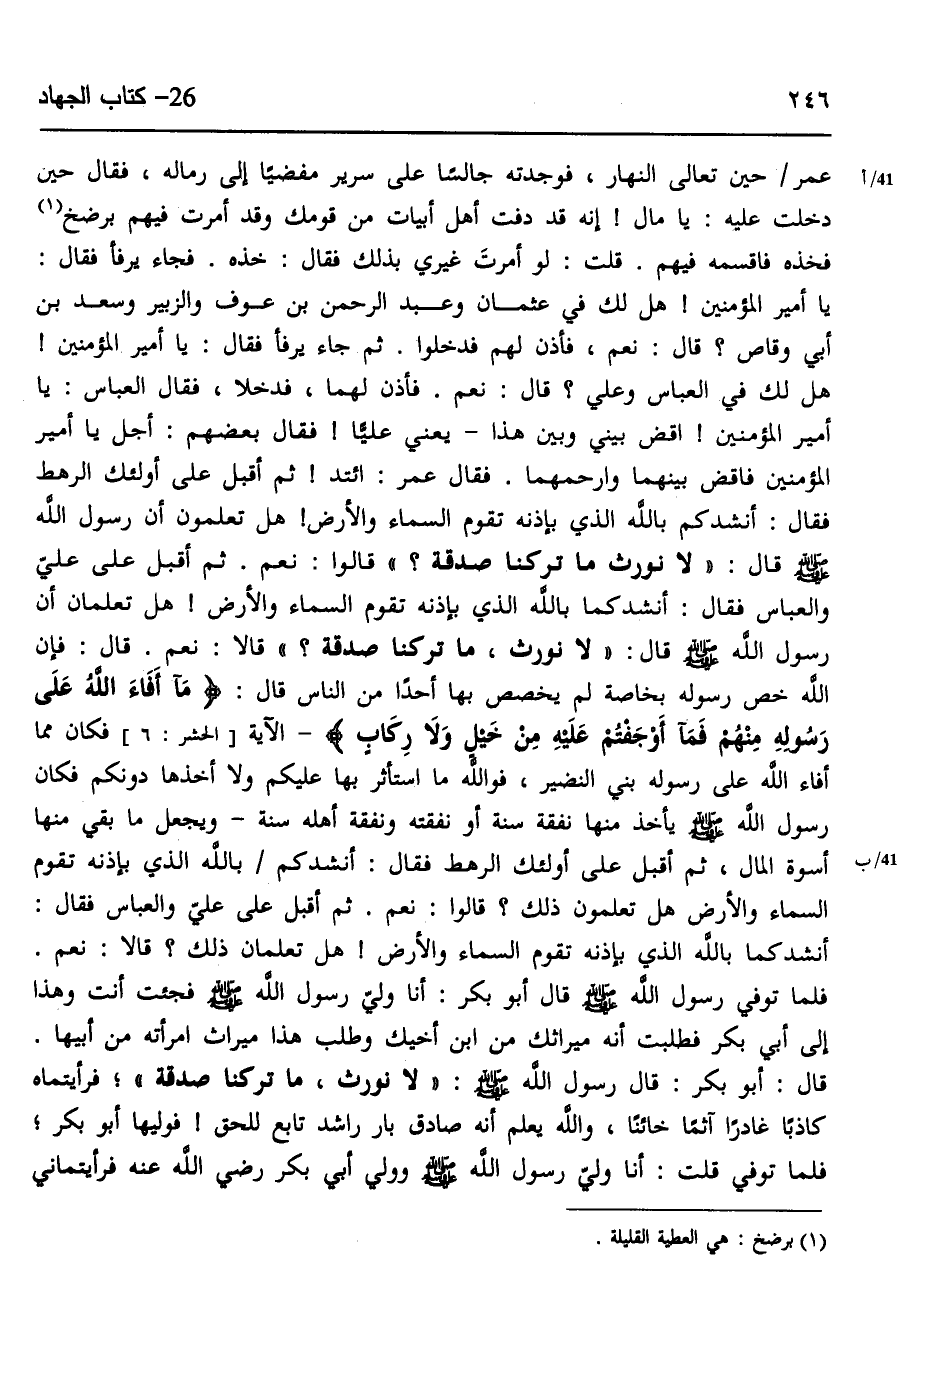 ٢٤٦ 26- كتاب الجهاد
41/أ عمر / حين تعالى النهار ، فوجدته جالسًا على سرير مفضيًا إلى رماله ، فقال حين
دخلت عليه : يا مال ! إنه قد دفت أهل أبيات من قومك وقد أمرت فيهم برضخ(١)
فخذه فاقسمه فيهم . قلت : لو أمرتَ غيري بذلك فقال : خذه . فجاء يرفأ فقال :
يا أمير المؤمنين ! هل لك في عثمـــان وعـــبد الرحمن بن عـوف والزبير وسعـد بن
أبي وقاص ؟ قال : نعم ، فأذن لهم فدخلوا . ثم جاء يرفأ فقال : يا أمير المؤمنين !
هل لك في العباس وعلي ؟ قال : نعم . فأذن لهما ، فدخلا ، فقال العباس : يا
أمير المؤمنين ! اقض بيني وبين هذا – يعني عليًّا ! فقال بعضهم : أجل يا أمير
المؤمنين فاقض بينهما وارحمهما . فقال عمر : ائتد ! ثم أقبل على أولئك الرهط
فقال : أنشدكم باللَّه الذي بإذنه تقوم السماء والأرض! هل تعلمون أن رسول اللَّه
ﷺ قال : « لا نورث ما تركنا صدقة ؟ » قالوا : نعم . ثم أقبل على عليّ
والعباس فقال : أنشدكما باللَّه الذي بإذنه تقوم السماء والأرض ! هل تعلمان أن
رسول اللَّه ﷺ قال: « لا نورث ، ما تركنا صدقة ؟ » قالا : نعم . قال : فإن
اللَّه خص رسوله بخاصة لم يخصص بها أحدًا من الناس قال : ﴿ مَآ أَفَآءَ اللَّهُ عَلَى
رَسُولِهِ مِنْهُمْ فَمَآ أَوْجَفْتُمْ عَلَيْهِ مِنْ خَيْلٍ وَلَا رِكَابٍ ﴾ – الآية [ الحشر : ٦ ] فكان مما
أفاء اللَّه على رسوله بني النضير ، فواللَّه ما استأثر بها عليكم ولا أخذها دونكم فكان
رسول اللَّه ﷺ يأخذ منها نفقة سنة أو نفقته ونفقة أهله سنة – ويجعل ما بقي منها
41/ب أسوة المال ، ثم أقبل على أولئك الرهط فقال : أنشدكم / باللَّه الذي بإذنه تقوم
السماء والأرض هل تعلمون ذلك ؟ قالوا : نعم . ثم أقبل على عليّ والعباس فقال :
أنشدكما باللَّه الذي بإذنه تقوم السماء والأرض ! هل تعلمان ذلك ؟ قالا : نعم .
فلما توفي رسول اللَّه ﷺ قال أبو بكر : أنا وليّ رسول اللَّه ﷺ فجئت أنت وهذا
إلى أبي بكر فطلبت أنه ميراثك من ابن أخيك وطلب هذا ميراث امرأته من أبيها .
قال : أبو بكر : قال رسول اللَّه ﷺ : « لا نورث ، ما تركنا صدقة » ؛ فرأيتماه
كاذبًا غادرًا آثمًا خائنًا ، واللَّه يعلم أنه صادق بار راشد تابع للحق ! فوليها أبو بكر ؛
فلما توفي قلت : أنا وليّ رسول اللَّه ﷺ وولي أبي بكر رضي اللَّه عنه فرأيتماني
(١) برضخ : هي العطية القليلة .